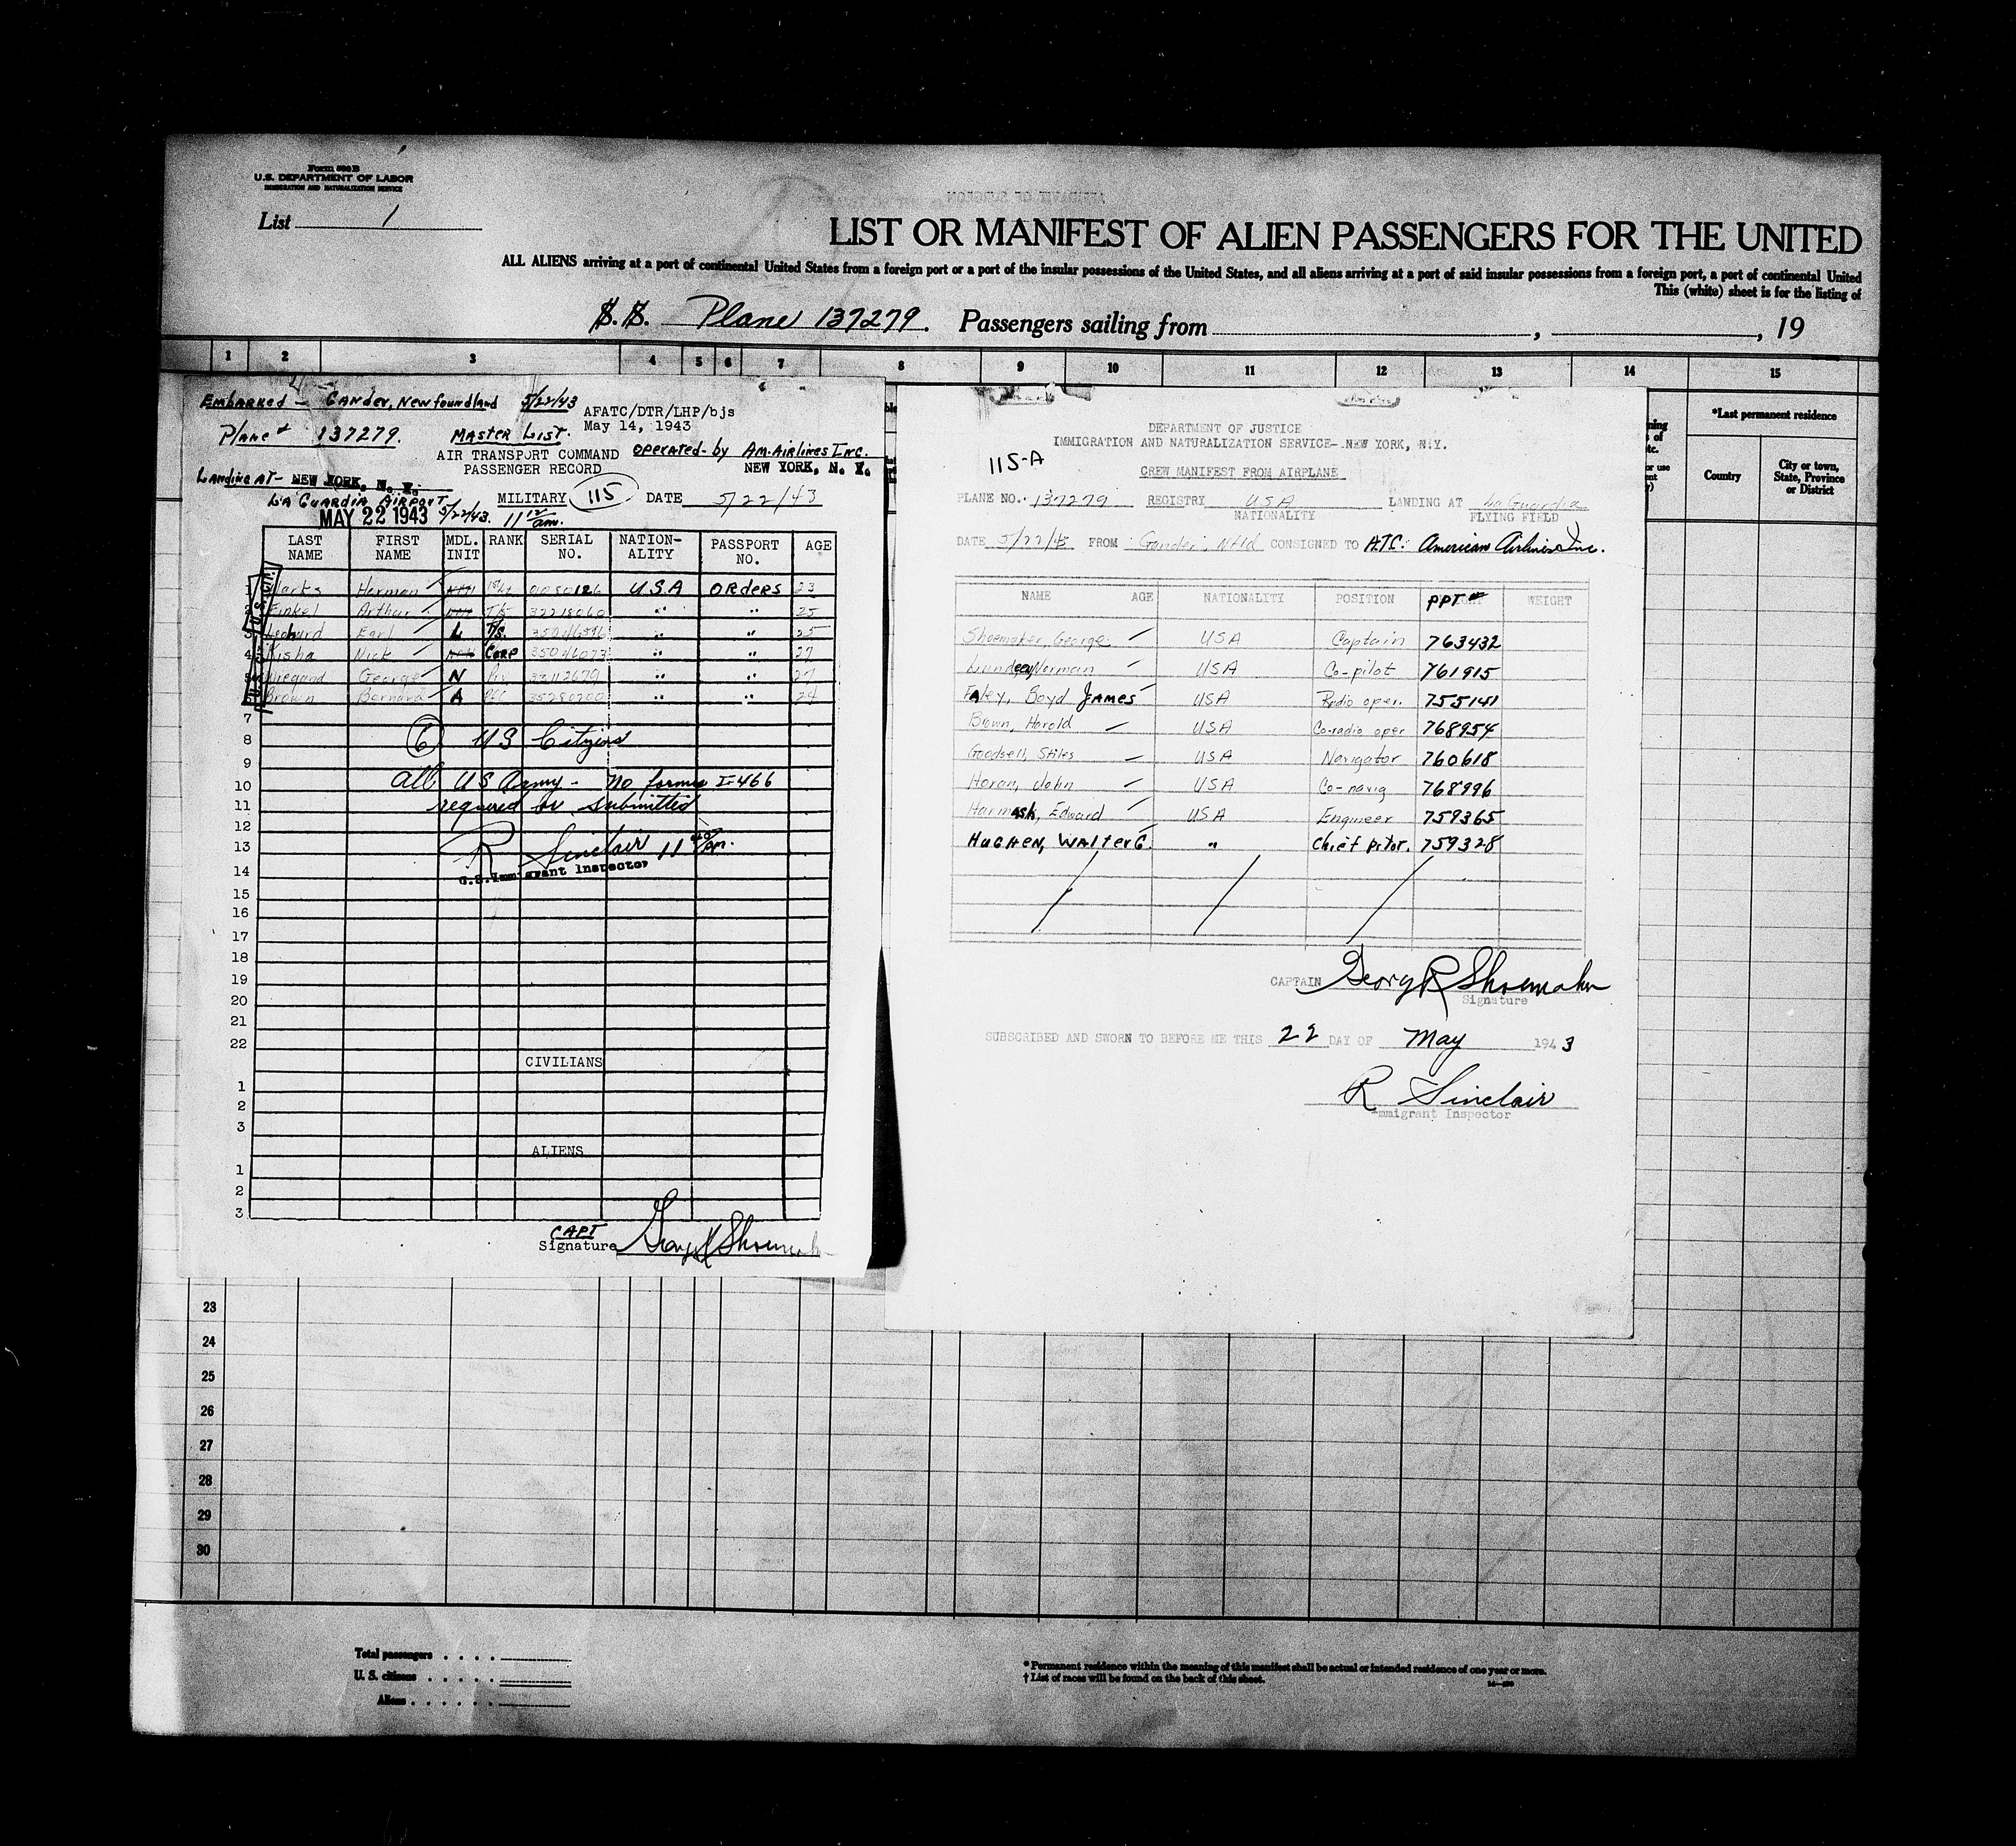 Form 500 B
U.S. DEPARTMENT OF LABOR
IMMIGRATION AND NATURALIZATION SERVICE
List 1
LIST OR MANIFEST OF ALIEN PASSENGERS FOR THE UNITED
ALL ALIENS arriving at a port of continental United States from a foreign port or a port of the insular possessions of the United States, and all aliens arriving at a port of said insular possessions from a foreign port, a port of continental United
This (white) sheet is for the listing of
S.S. Plane 137279. Passengers sailing from , , 19
1 2 3 4 5 6 7 8 9 10 11 12 13 14 15
*Last permanent residence
Country City or town, State, Province or District
Embarked - Gander, Newfoundland 5/22/43
AFATC/DTR/LHP/bjs
May 14, 1943
Plane # 137279. Master List.
AIR TRANSPORT COMMAND operated by Am. Airlines Inc.
PASSENGER RECORD NEW YORK, N. Y.
Landing At - NEW YORK, N. Y.
La Guardia Airport
MILITARY 115 DATE 5/22/43
MAY 22 1943 5/22/43. 11 am.
LAST NAME FIRST NAME MDL. INIT RANK SERIAL NO. NATION-ALITY PASSPORT NO. AGE
1 Herman 1st Lt U.S.A ORders 23
2 Finkel Arthur 32218060 " " 25
3 Earl L T/S. " " 25
4 Kisha Nick CORP 35046073 " " 27
5 George N 33112679 " " 27
6 Brown Bernard A Pfc 35280700 " " 24
7
8 6 US Citizens
9
10 all US Army - no forms I-466
11 required or submitted
12
13 R Sinclair 11 am.
14 U.S. Immigrant Inspector
15
16
17
18
19
20
21
22
CIVILIANS
1
2
3
ALIENS
1
2
3
CAPT
Signature George R Shoemaker
DEPARTMENT OF JUSTICE
IMMIGRATION AND NATURALIZATION SERVICE--NEW YORK, N.Y.
115-A
CREW MANIFEST FROM AIRPLANE
PLANE NO. 137279 REGISTRY USA LANDING AT La Guardia
NATIONALITY FLYING FIELD
DATE 5/22/43 FROM Gander Nfld CONSIGNED TO ATC: American Airlines Inc.
NAME AGE NATIONALITY POSITION PPT # WEIGHT
Shoemaker, George USA Captain 763432
Norman USA Co-pilot 761915
Boyd James USA Radio oper. 755141
Brown, Harold USA Co-radio oper 768954
Goodsell, Stiles USA Navigator 760618
Horan, John USA Co-navig 768996
Edward USA Engineer 759365
HugHen, Walter C. " Chief pilot. 759328
CAPTAIN George R Shoemaker
Signature
SUBSCRIBED AND SWORN TO BEFORE ME THIS 22 DAY OF May 1943
R Sinclair
Immigrant Inspector
23
24
25
26
27
28
29
30
Total passengers
U. S. citizens
Aliens
* Permanent residence within the meaning of this manifest shall be actual or intended residence of one year or more.
† List of races will be found on the back of this sheet.